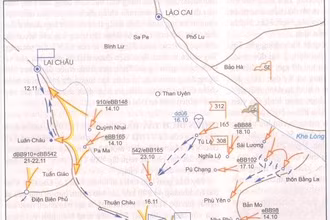 LÀO CAI
Sa Pa
Phố Lu
Bình Lư
LAI CHÂU
Bảo Hà
Than Uyên
12.11
910/eBB148
14.10
312
Quỳnh Nhai
165
eBB165
14.10
Tú Lệ
308
eBB88
16.10
Khe Lóng
Luân Châu
Pa Ma
542/eBB165
23.10
Nghĩa Lộ
Sài Lương
dBB910+dBB542
21-22.11
eBB102
17.10
Tuần Giáo
Pù Chạng
thôn Bằng La
Điện Biên Phủ
Thuận Châu
Phù Yên
Bản Mo
16.11